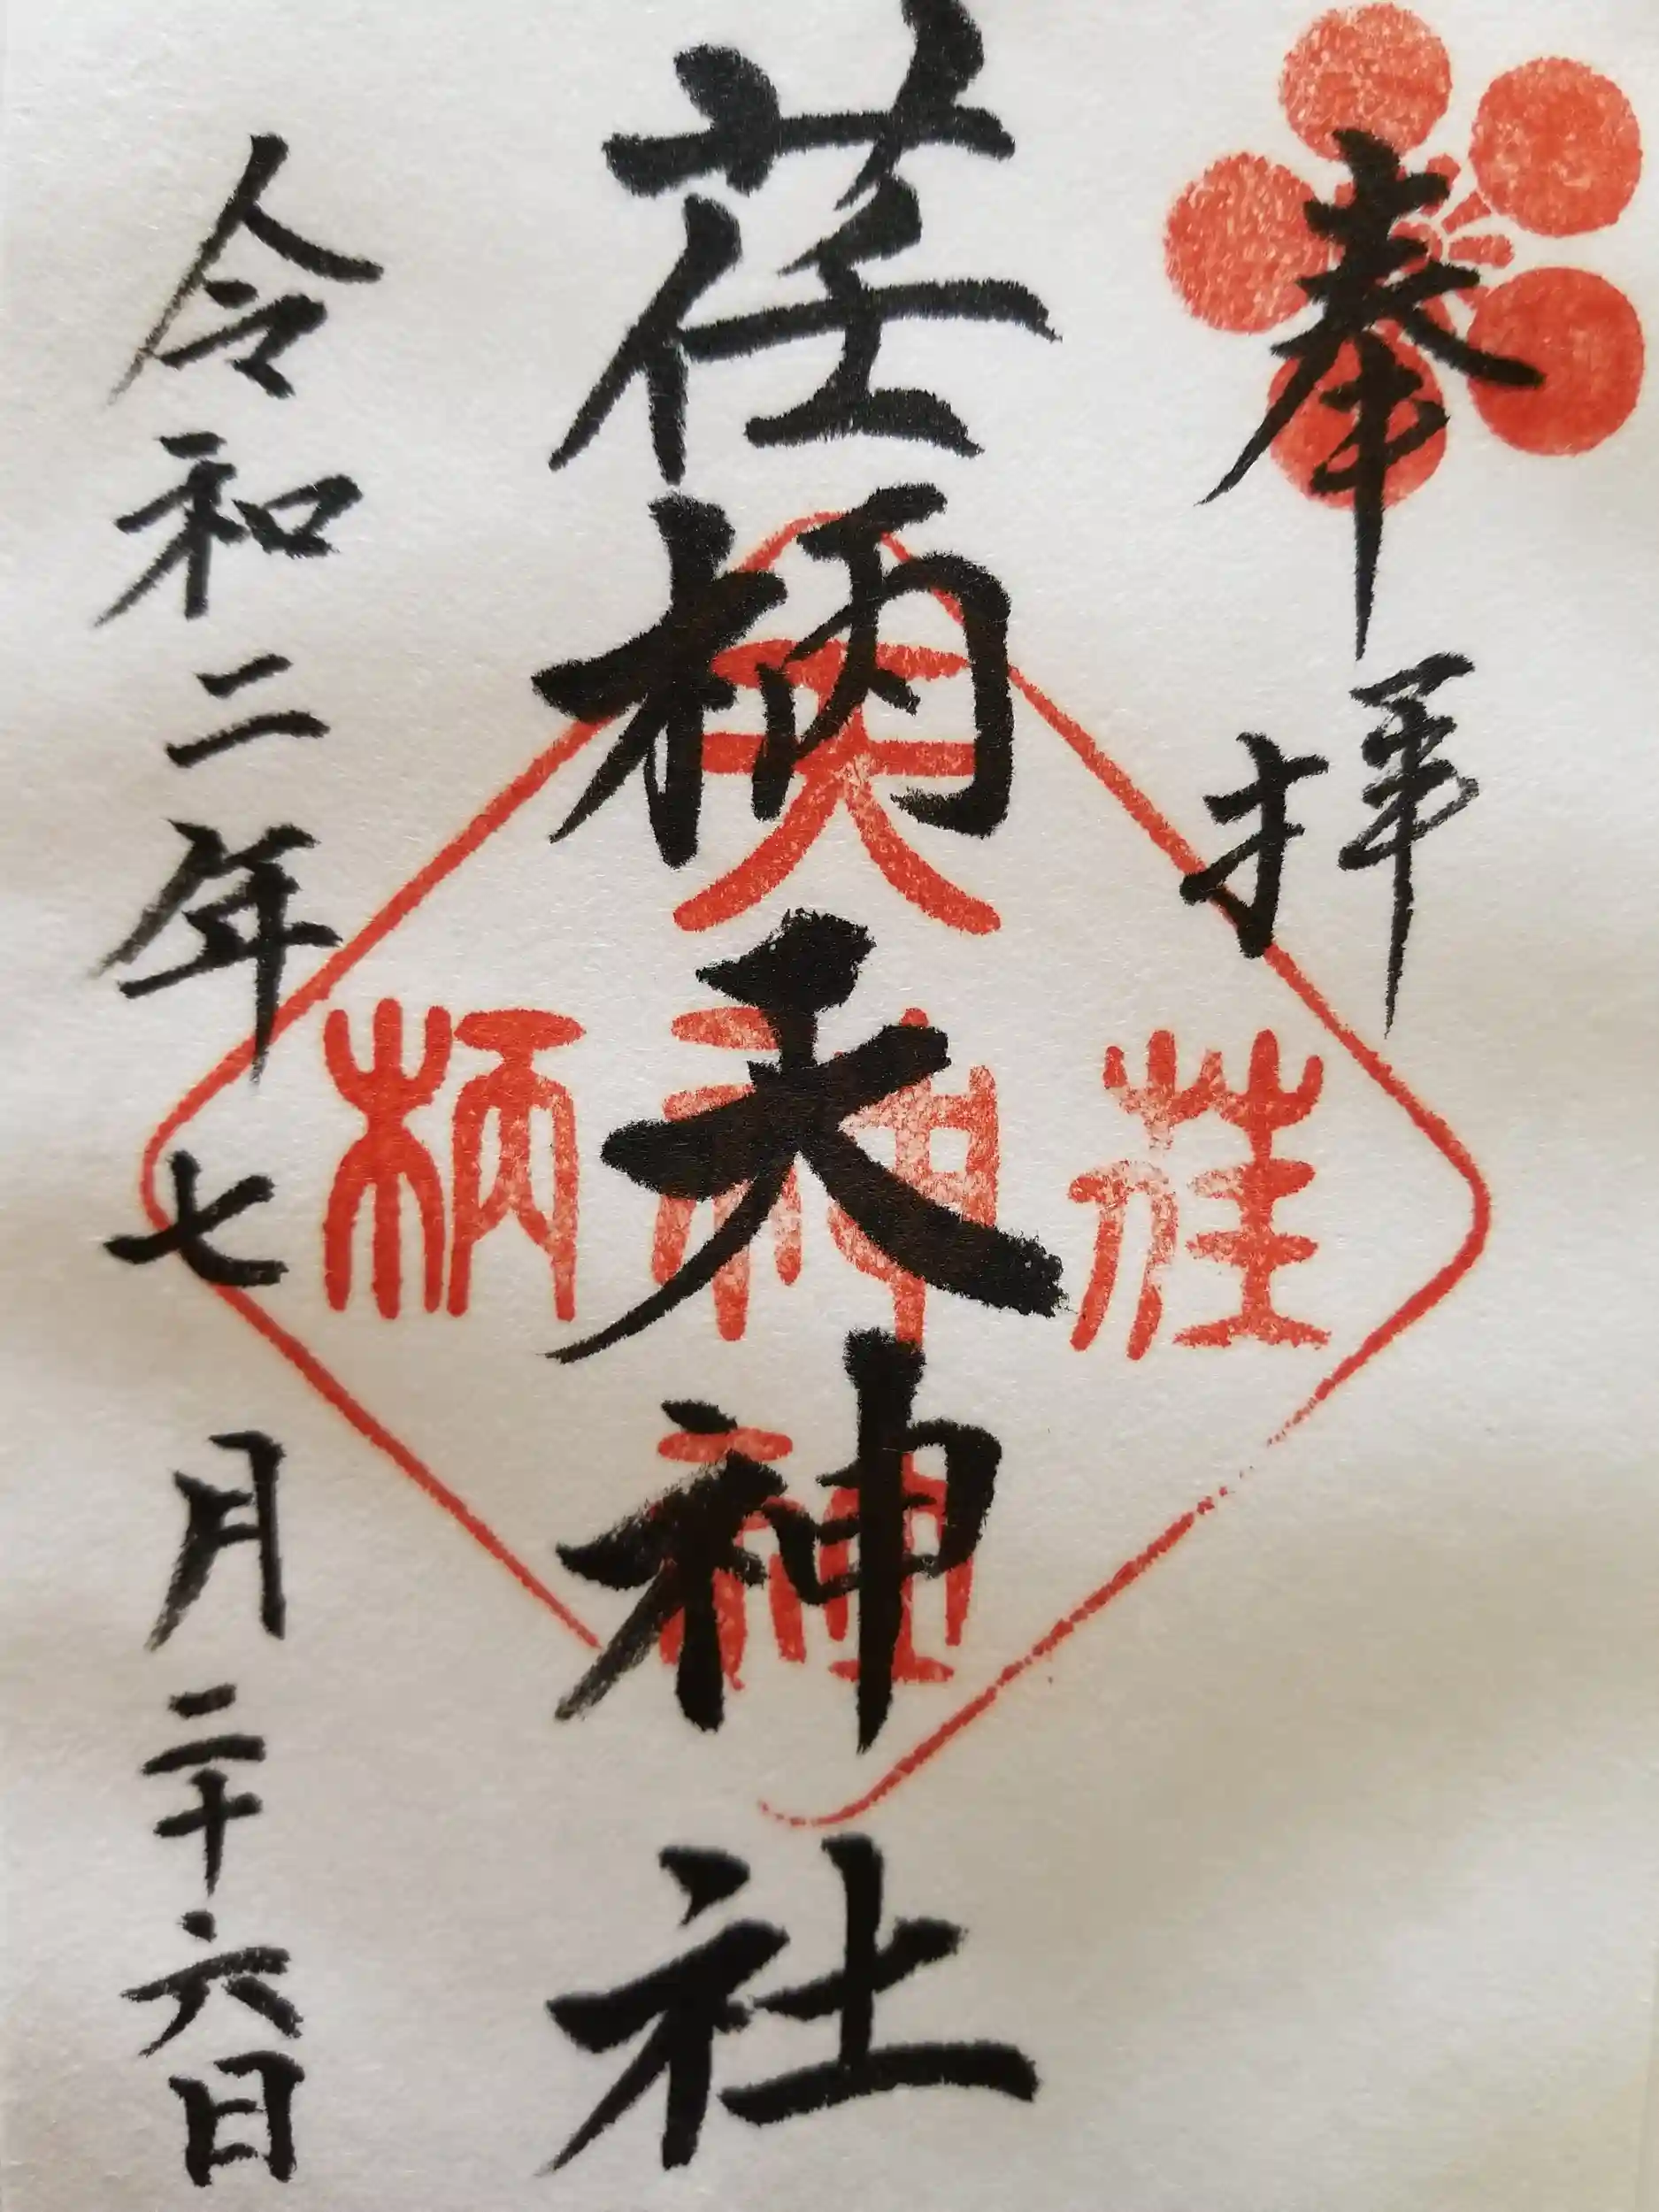 奉拝
荏柄天神社
令和二年七月二十六日
天
荏神柄
社